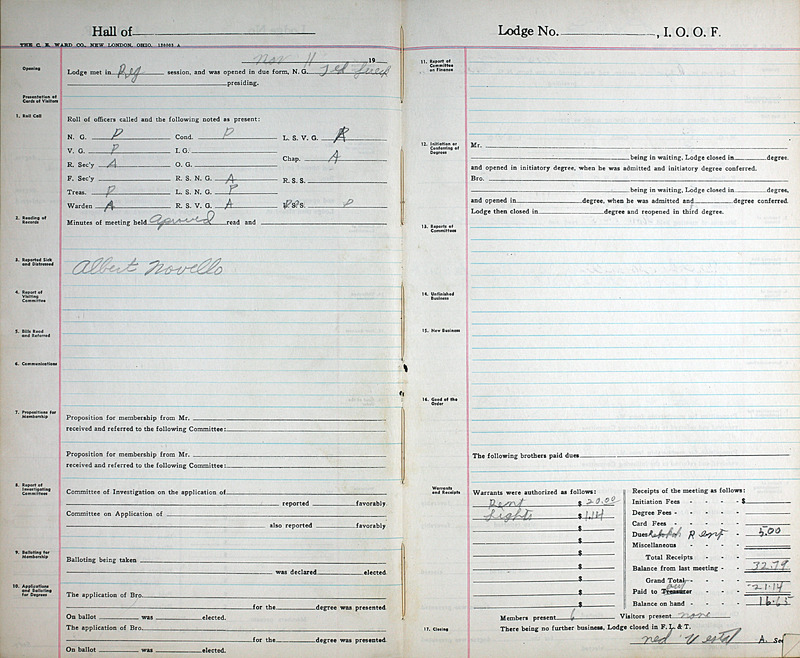 Hall of
THE C. E. WARD CO., NEW LONDON, OHIO. 130003 A
Nov 11 19
Opening
Lodge met in Reg session, and was opened in due form, N. G. Ted
presiding.
Presentation of Cards of Visitors
1. Roll Call
Roll of officers called and the following noted as present:
N. G. P Cond. P L. S. V. G. A
V. G. P I. G. Chap. A
R. Sec'y A O. G.
F. Sec'y R. S. N. G. A R. S. S.
Treas. P L. S. N. G. P
Warden A R. S. V. G. A S. S. P
2. Reading of Records
Minutes of meeting held read and
3. Reported Sick and Distressed
Albert Novello
4. Report of Visiting Committee
5. Bills Read and Referred
6. Communications
7. Propositions for Membership
Proposition for membership from Mr.
received and referred to the following Committee:
Proposition for membership from Mr.
received and referred to the following Committee:
8. Report of Investigating Committees
Committee of Investigation on the application of
reported favorably
Committee on Application of
also reported favorably
9. Balloting for Membership
Balloting being taken
was declared elected.
10. Applications and Balloting for Degrees
The application of Bro.
for the degree was presented.
On ballot was elected.
The application of Bro.
for the degree was presented.
On ballot was elected.
Lodge No. , I. O. O. F.
11. Report of Committee on Finance
12. Initiation or Conferring of Degrees
Mr.
being in waiting, Lodge closed in degree,
and opened in initiatory degree, when he was admitted and initiatory degree conferred.
Bro.
being in waiting, Lodge closed in degree,
and opened in degree, when he was admitted and degree conferred.
Lodge then closed in degree and reopened in third degree.
13. Reports of Committees
14. Unfinished Business
15. New Business
16. Good of the Order
The following brothers paid dues
Warrants and Receipts
Warrants were authorized as follows:
Rent $ 20.00
Lights $ 1.14
$
$
$
$
$
$
$
Receipts of the meeting as follows:
Initiation Fees $
Degree Fees
Card Fees
Dues Rent 5.00
Miscellaneous
Total Receipts
Balance from last meeting 32.79
Grand Total
Paid to Treasurer out 21.14
Balance on hand 16.65
Members present 6 Visitors present none
17. Closing
There being no further business, Lodge closed in F. L. & T.
A. Sec